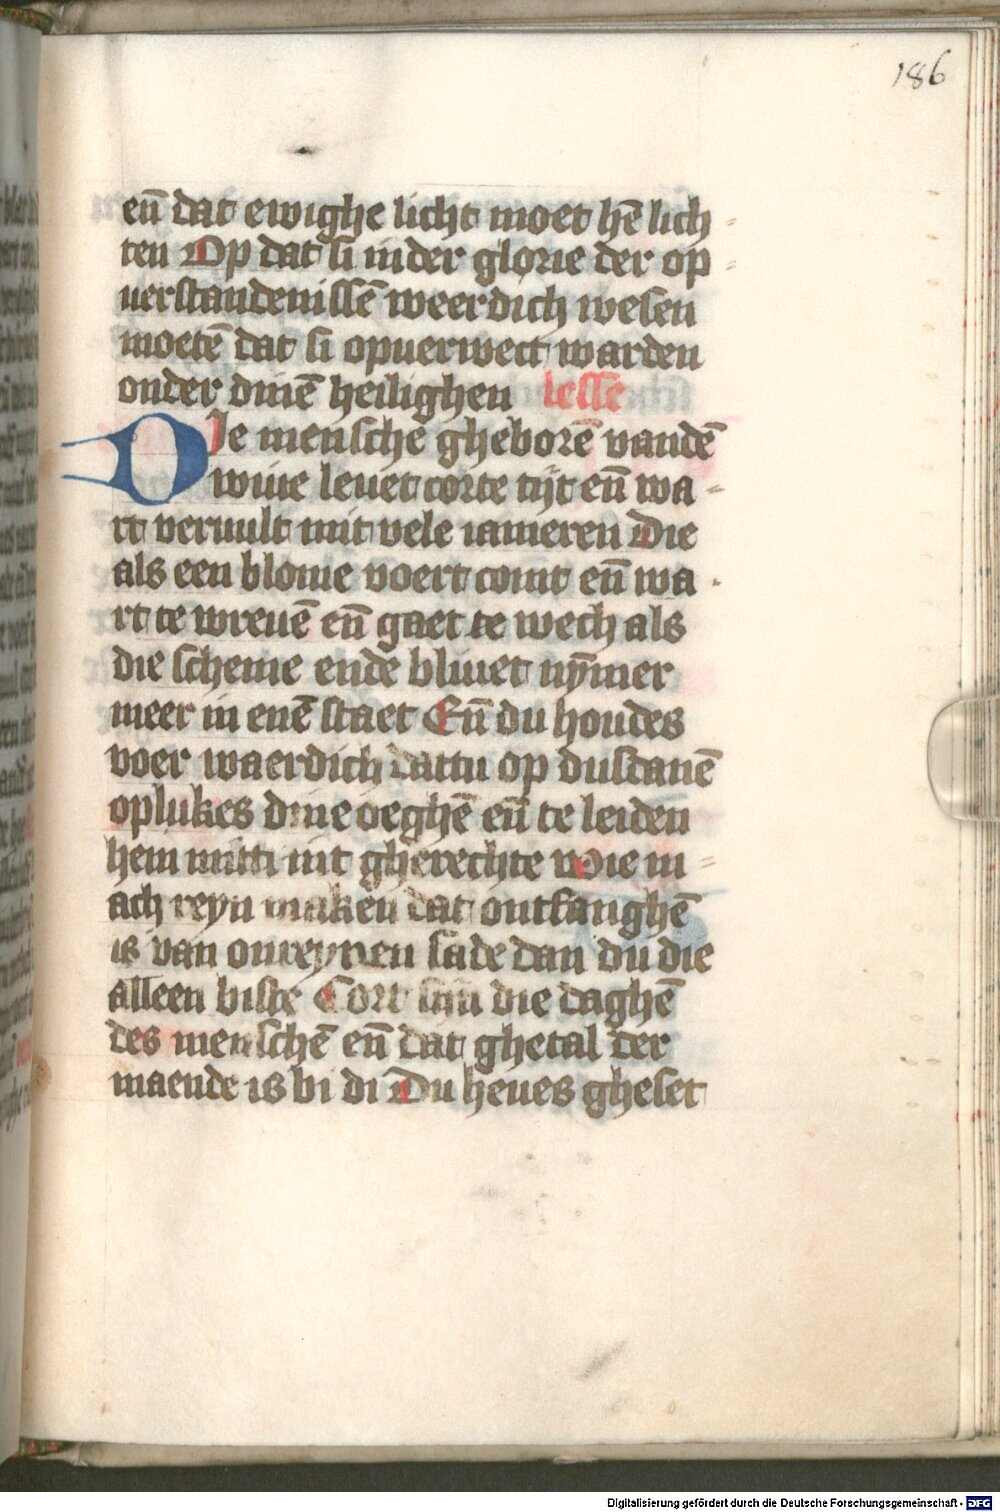 186
eñ dat ewighe licht moet hē lich
ten Op dat si in der glorie der op
uerstandenissē weerdich wesen
moetē dat si opuerwect warden
onder dinē heilighen lesse
Die mensche gheborē vandē
wiue leuet corte tijt eñ wa
rt veruult mit vele iameren Die
als een blome voert comt eñ wa
rt te wreuē eñ gaet te wech als
die scheme ende bliuet nȳmer
meer in enē staet Eñ du houdes
voer waerdich dattu op dustanē
oplukes dine oeghē eñ te leiden
hem mitti int gherechte wie m
ach reyn maken dat ontfanghē
is van onreynen sade dan du die
alleen biste Cort sijn die daghē
des menschē eñ dat ghetal der
maende is bi di Du heues gheset
Digitalisierung gefördert durch die Deutsche Forschungsgemeinschaft - DFG